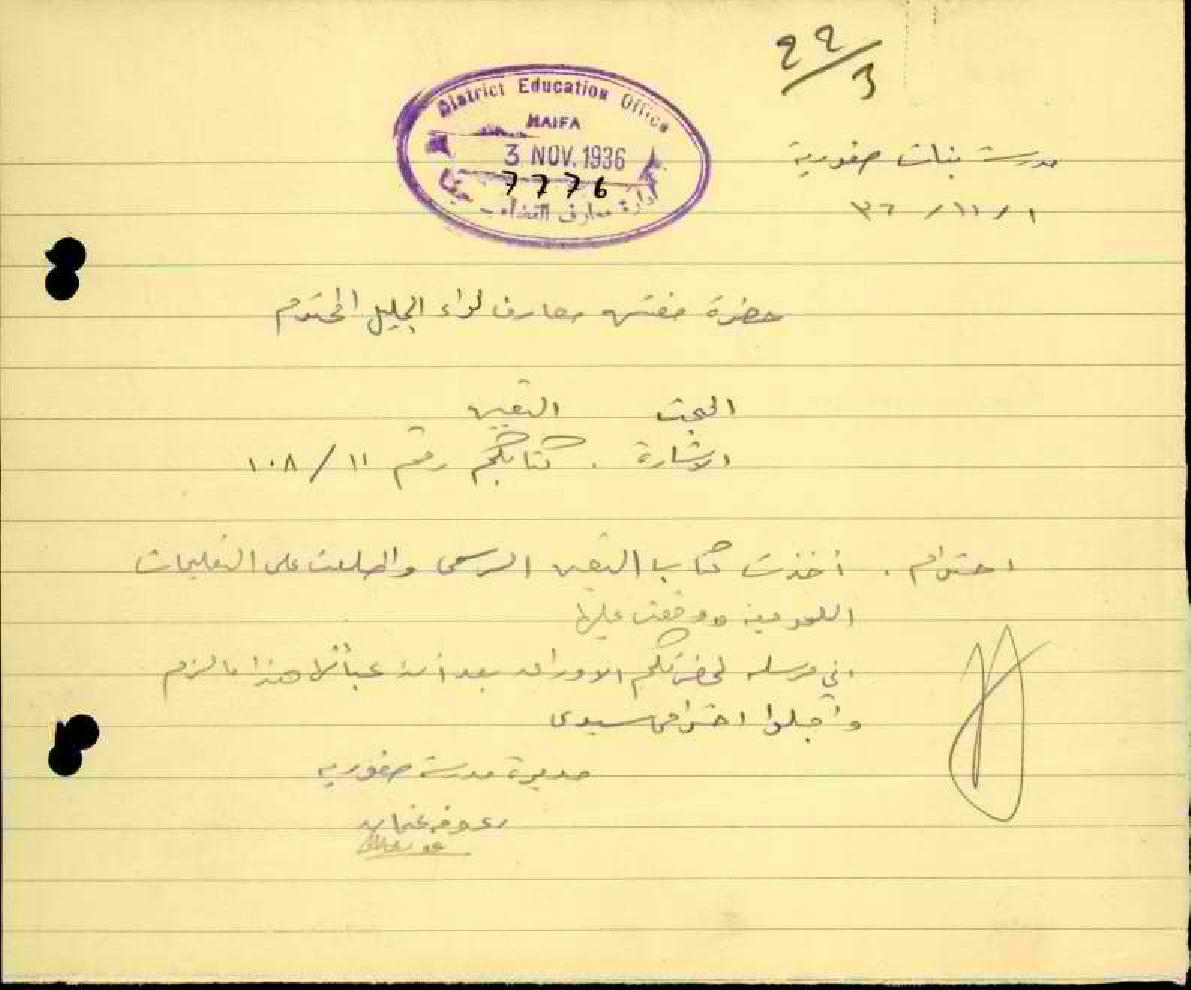 22/3
District Education Office
HAIFA
3 NOV. 1936
7776
ادارة معارف القضاء - حيفا
مدرسة بنات صفورية
٣٦ / ١١ / ١
حضرة مفتش معارف لواء الجليل المحترم
البحث التعيين
الاشارة . كتابكم رقم ١١ / ١٠٨
احترام . أخذت كتاب التعيين الرسمي واطلعت على التعليمات
ووقعت عليها
اني مرسله لحضرتكم الاوراق بعد أن عبأتها هذا ما لزم
وأقبلوا احترامي سيدي
مديرة مدرسة صفوريه